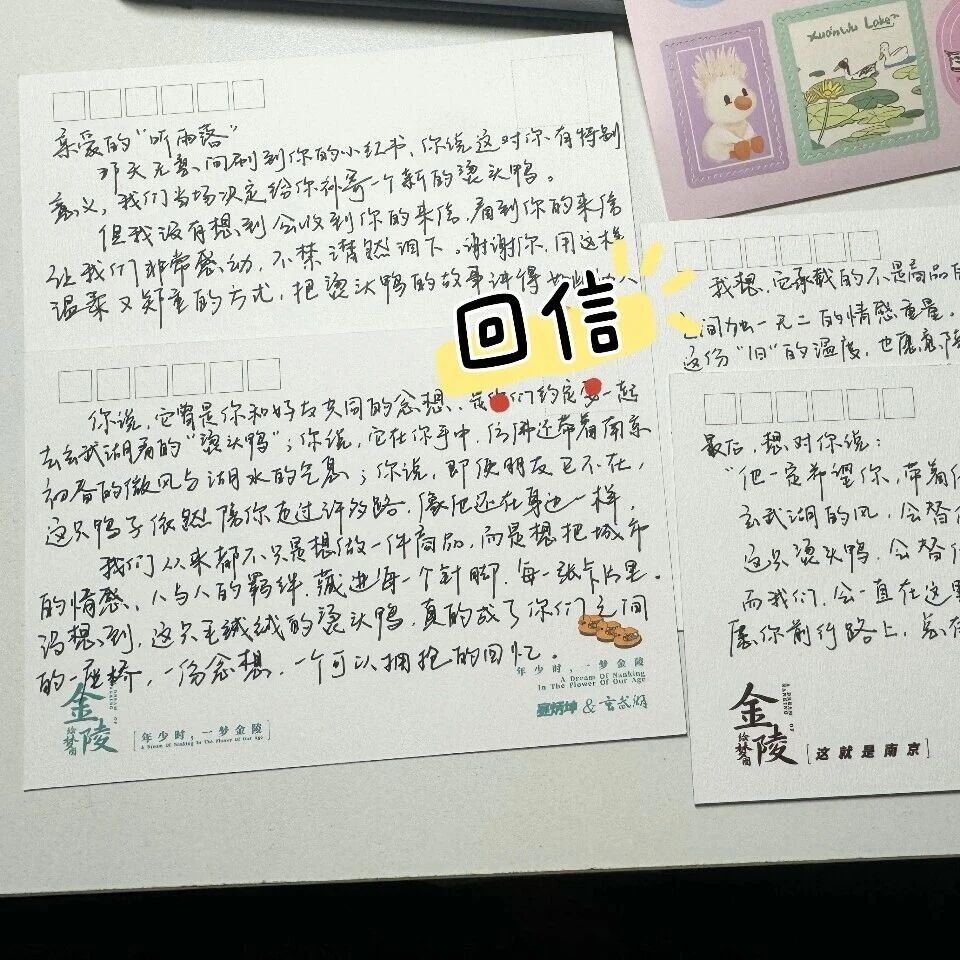 亲爱的“听雨落”
那天无意间刷到你的小红书，你说这对你有特别
意义，我们当场决定给你补寄一个新的烫头鸭。
但我没有想到会收到你的来信，看到你的来信
让我们非常感动，不禁潸然泪下。谢谢你，用这样
温柔又郑重的方式，把烫头鸭的故事讲得如此
回信
你说，它曾是你和好友共同的念想，是你们约定要一起
去玄武湖看的“烫头鸭”；你说，它在你手中，仿佛还带着南京
初春的微风与湖水的气息；你说，即使朋友已不在，
这只鸭子依然陪你走过许多路，像他还在身边一样，
我们从来都不只是想做一件商品，而是想把城市
的情感，人与人的羁绊，藏进每一个针脚，每一张卡片里。
没想到，这只毛绒绒的烫头鸭，真的成了你们之间
的一座桥，一份念想，一个可以拥抱的回忆。
金陵
A DREAM OF NANKING
[年少时，一梦金陵]
A Dream Of Nanking In The Flower Of Our Age
年少时，一梦金陵
A Dream Of Nanking
In The Flower Of Our Age
&玄武湖
Xuanwu Lake
我想，它承载的不是商品
之间独一无二的情感重量。
这份“旧”的温度，也愿意陪
最后，想对你说：
“他一定希望你，带着
玄武湖的风，会替
这只烫头鸭，会替
而我们，会一直在这里
愿你前行路上，总有
金陵
A DREAM OF NANKING
[这就是南京]